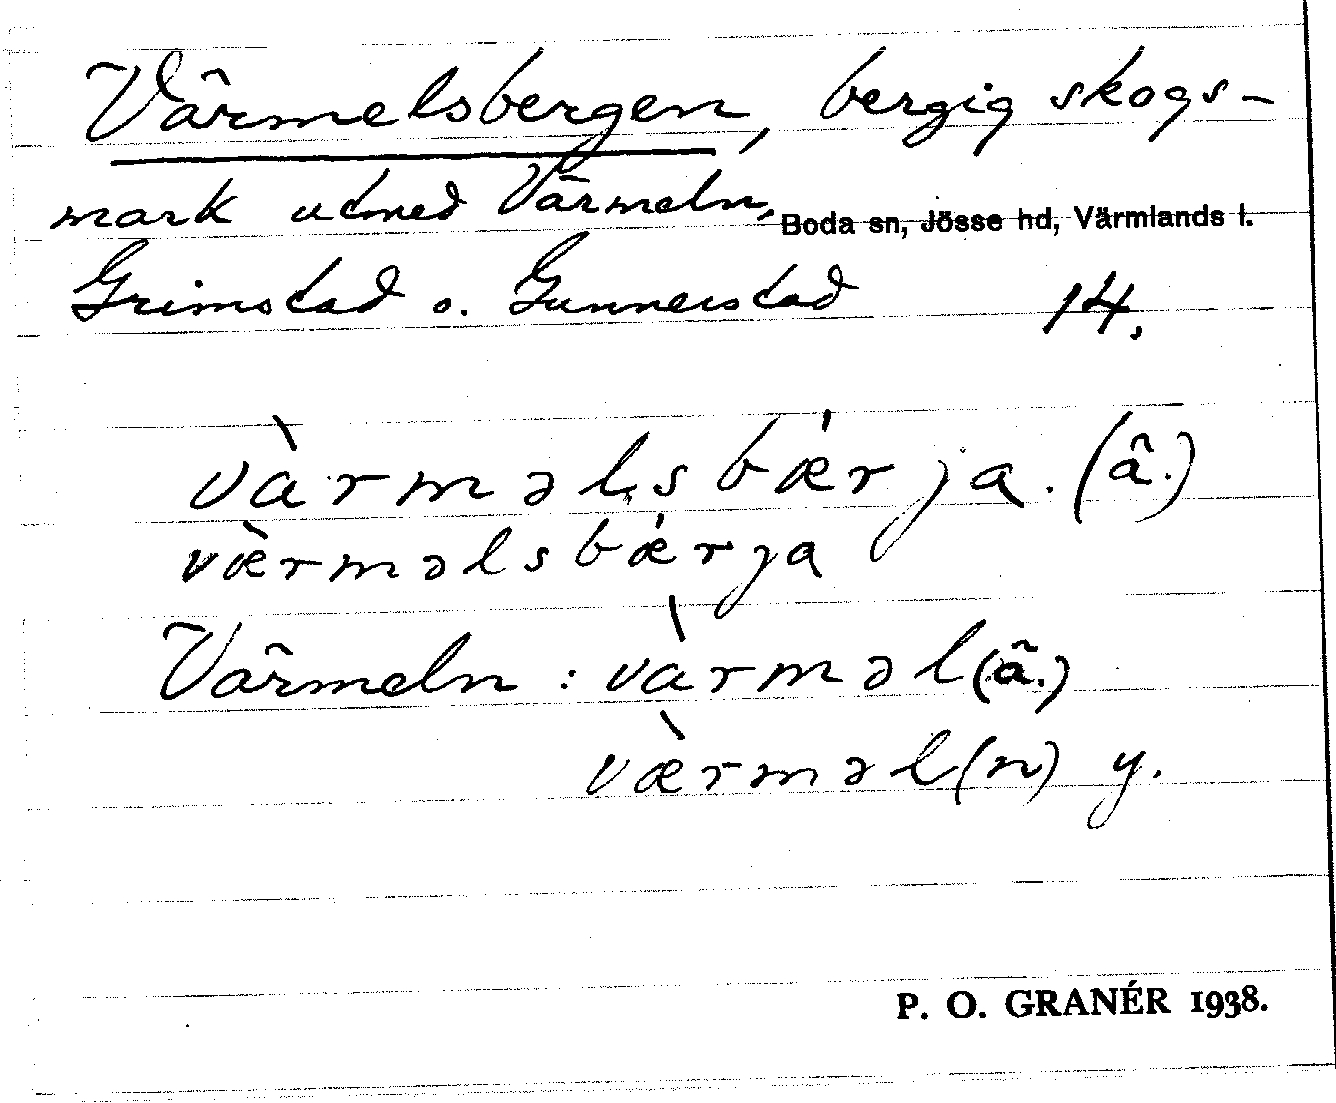 Värmelsbergen, bergig skogs-
mark utmed Värmeln,
Boda sn, Jösse hd, Värmlands l.
Grimstad o. Gunnerstad 14.
vàrməlsbǽrja. (ä.)
væ̀rməlsbǽrja
Värmeln: vàrməl (ä.)
væ̀rməl(n) y.
P. O. GRANÉR 1938.